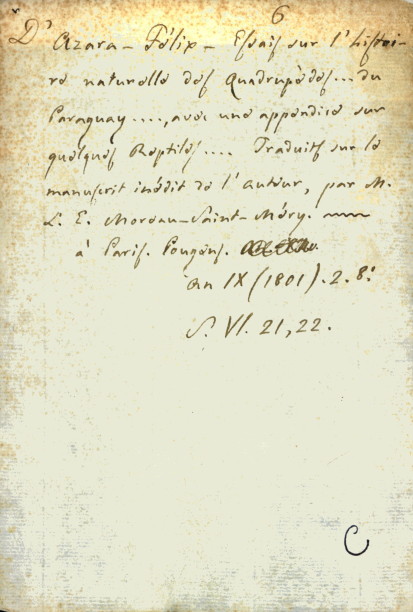 6
D' Azara - Félix - Essais sur l'histoi-
re naturelle des Quadrupèdes... du
Paraguay...., avec une appendice sur
quelques Reptiles.... Traduits sur le
manuscrit inédit de l'auteur, par M.
L. E. Moreau-Saint-Méry.
à Paris. Pougens.
An IX (1801). 2. 8º
S. VI. 21, 22.
C